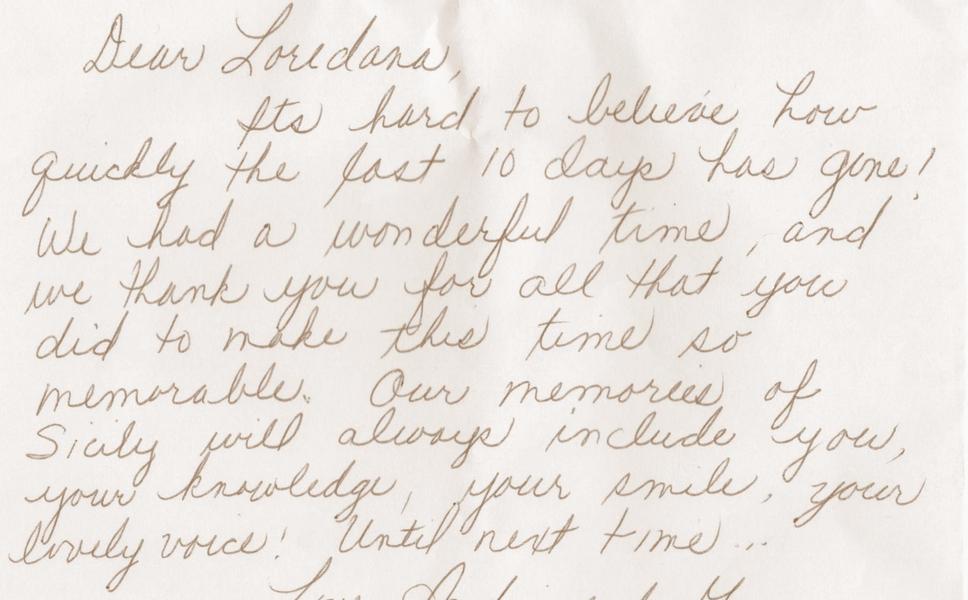 Dear Loredana,
Its hard to believe how
quickly the last 10 days has gone!
We had a wonderful time, and
we thank you for all that you
did to make this time so
memorable. Our memories of
Sicily will always include you,
your knowledge, your smile, your
lovely voice! Until next time...